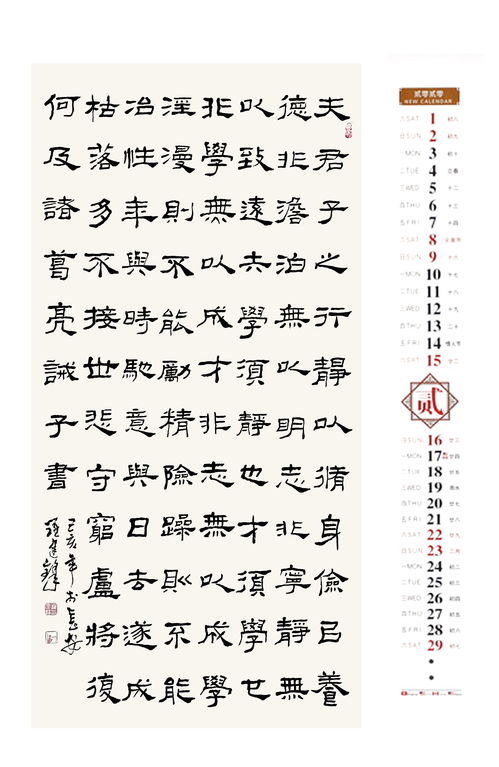 夫君子之行靜以脩身儉㠯養
德非澹泊無以明志非寧靜無
以致遠夫學須靜也才須學也
非學無以成才非志無以成學
淫漫則不能勵精險躁則不能
冶性年與時馳意與日去遂成
枯落多不接世悲守窮廬將復
何及諸葛亮誡子書
己亥年於長安
貳零貳零
NEW CALENDAR
六 SAT 1 初八
日 SUN 2 初九
一 MON 3 初十
二 TUE 4 立春
三 WED 5 十二
四 THU 6 十三
五 FRI 7 十四
六 SAT 8 元宵节
日 SUN 9 十六
一 MON 10 十七
二 TUE 11 十八
三 WED 12 十九
四 THU 13 二十
五 FRI 14 情人节
六 SAT 15 廿二
贰
日 SUN 16 廿三
一 MON 17 廿四
二 TUE 18 廿五
三 WED 19 雨水
四 THU 20 廿七
五 FRI 21 廿八
六 SAT 22 廿九
日 SUN 23 二月
一 MON 24 初二
二 TUE 25 初三
三 WED 26 初四
四 THU 27 初五
五 FRI 28 初六
六 SAT 29 初七